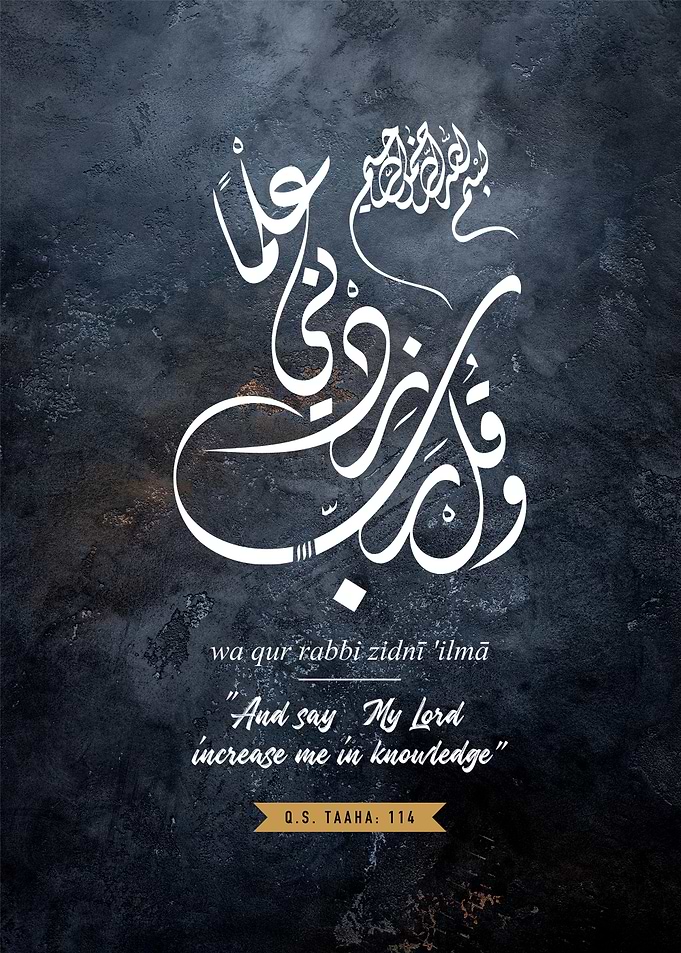 بسم الله الرحمن الرحيم
وقل رب زدني علما
wa qur rabbi zidnī 'ilmā
"And say My Lord
increase me in knowledge"
Q.S. TAAHA: 114